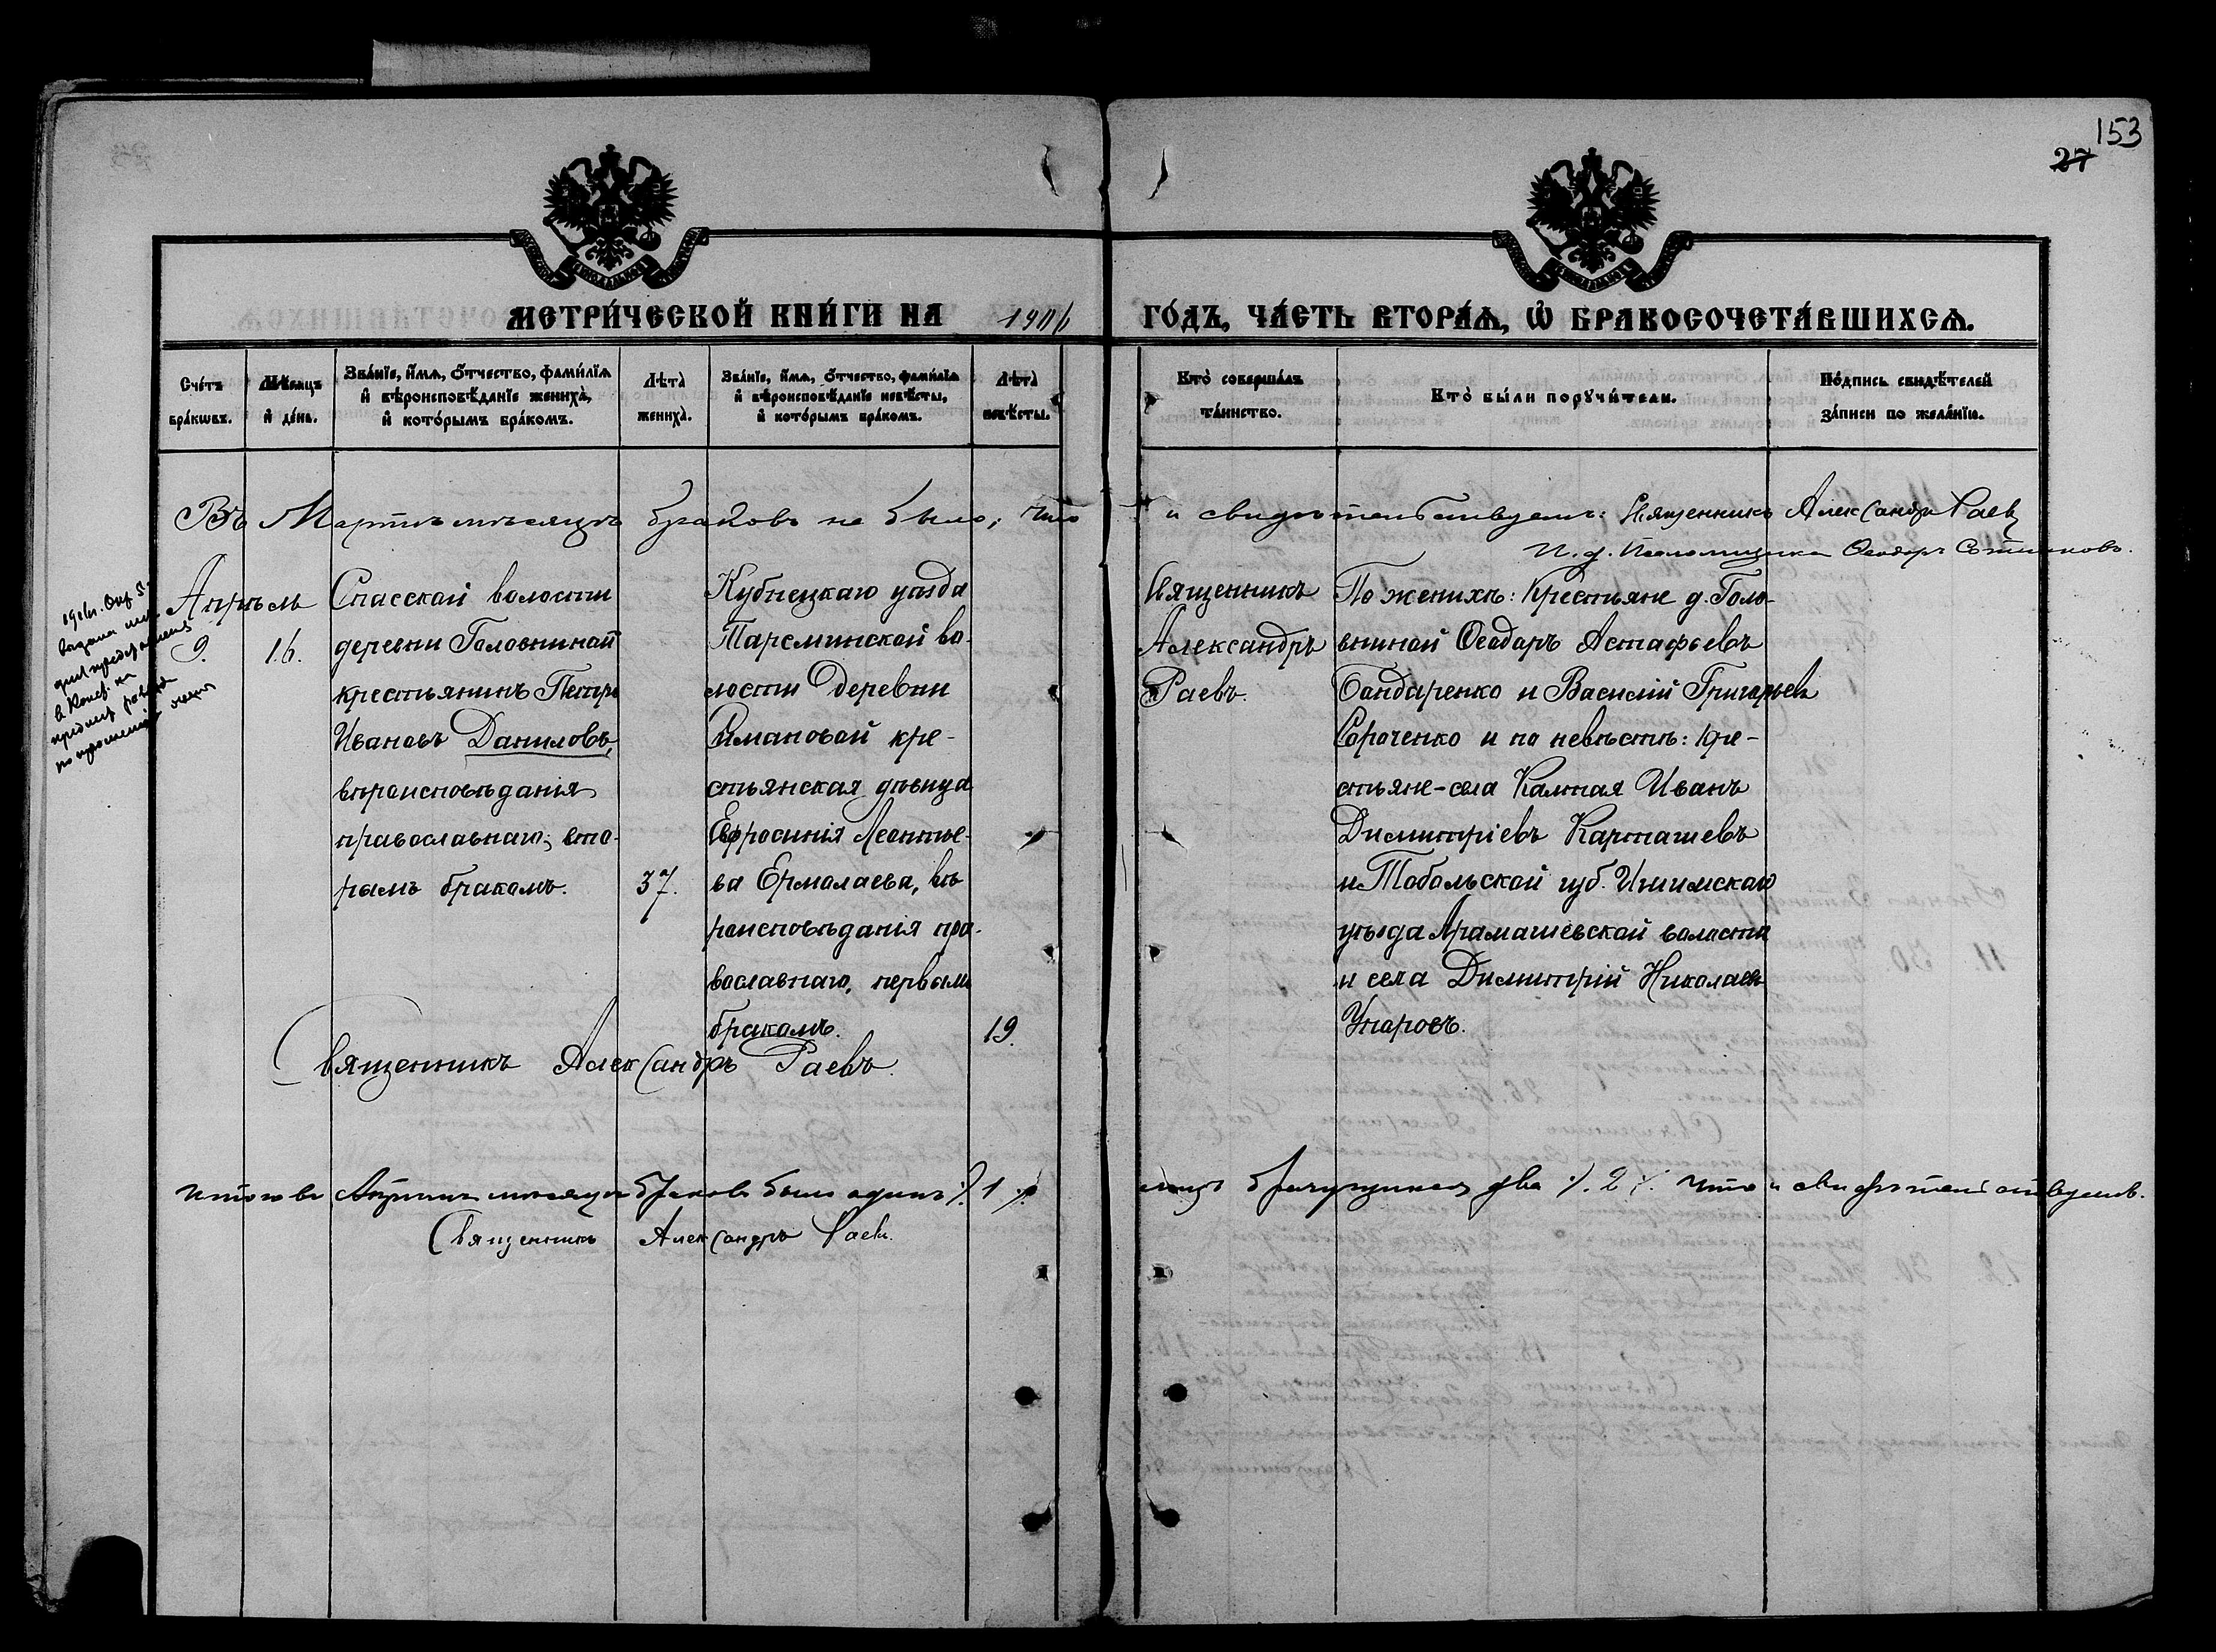 153
27
МЕТРИ́ЧЕСКОЙ КНИ́ГИ НА 1916 ГО́ДЪ, ЧА́СТЬ ВТОРА́Ѧ, Ѡ҆ БРАКОСОЧЕТА́ВШИХСѦ.
Сче́тъ бра́кѡвъ.
Мѣ́сѧцъ и҆ де́нь.
Зва́нїе, и҆́мѧ, ѻ҆́тчество, фамилїѧ и҆ вѣроисповѣ́данїе женихà, и҆ кото́рымъ бра́комъ.
Лѣтà женихà.
Зва́нїе, и҆́мѧ, ѻ҆́тчество, фамилїѧ и҆ вѣроисповѣ́данїе невѣ́сты, и҆ кото́рымъ бра́комъ.
Лѣтà невѣ́сты.
Кто̀ соверша́лъ та́инство.
Кто̀ бы́ли порꙋчи́тели.
По́дпись свидѣ́телей за́писи по жела́нїю.
Въ Мартѣ мѣсяцѣ браковъ не было, что и свидѣтельствуемъ: Священникъ Александръ Раевъ
И. д. Псаломщика Ѳеодоръ Сотниковъ.
1916г. Окт.
Апрѣль
9.
16.
Спасской волости
деревни Головниной
крестьянинъ Петръ
Ивановъ Даниловъ,
вѣроисповѣданія
православнаго; вто-
рымъ бракомъ.
37.
Кузнецкаго уѣзда
Тарсминской во-
лости деревни
Римановой кре-
стьянская дѣвица
Евфросинія Леонтье-
ва Ермолаева, вѣ-
роисповѣданія пра-
вославнаго, первымъ
бракомъ.
19.
Священникъ
Александръ
Раевъ.
По женихѣ: Крестьяне д. Голо-
вниной Ѳеодоръ Астафьевъ
Бондаренко и Василій Григорьевъ
Сороченко и по невѣстѣ: кре-
стьяне-села Калтая Иванъ
Димитріевъ Карташевъ
и Тобольской губ. Ишимскаго
уѣзда Арамашевской волости
и села Димитрій Николаевъ
Упаровъ.
Священникъ Александръ Раевъ.
Итого въ Апрѣлѣ мѣсяцѣ браковъ былъ одинъ ./. 1 ./. лицъ брачущихся два ./. 2 ./. что и свидѣтельствуемъ.
Священникъ Александръ Раевъ.